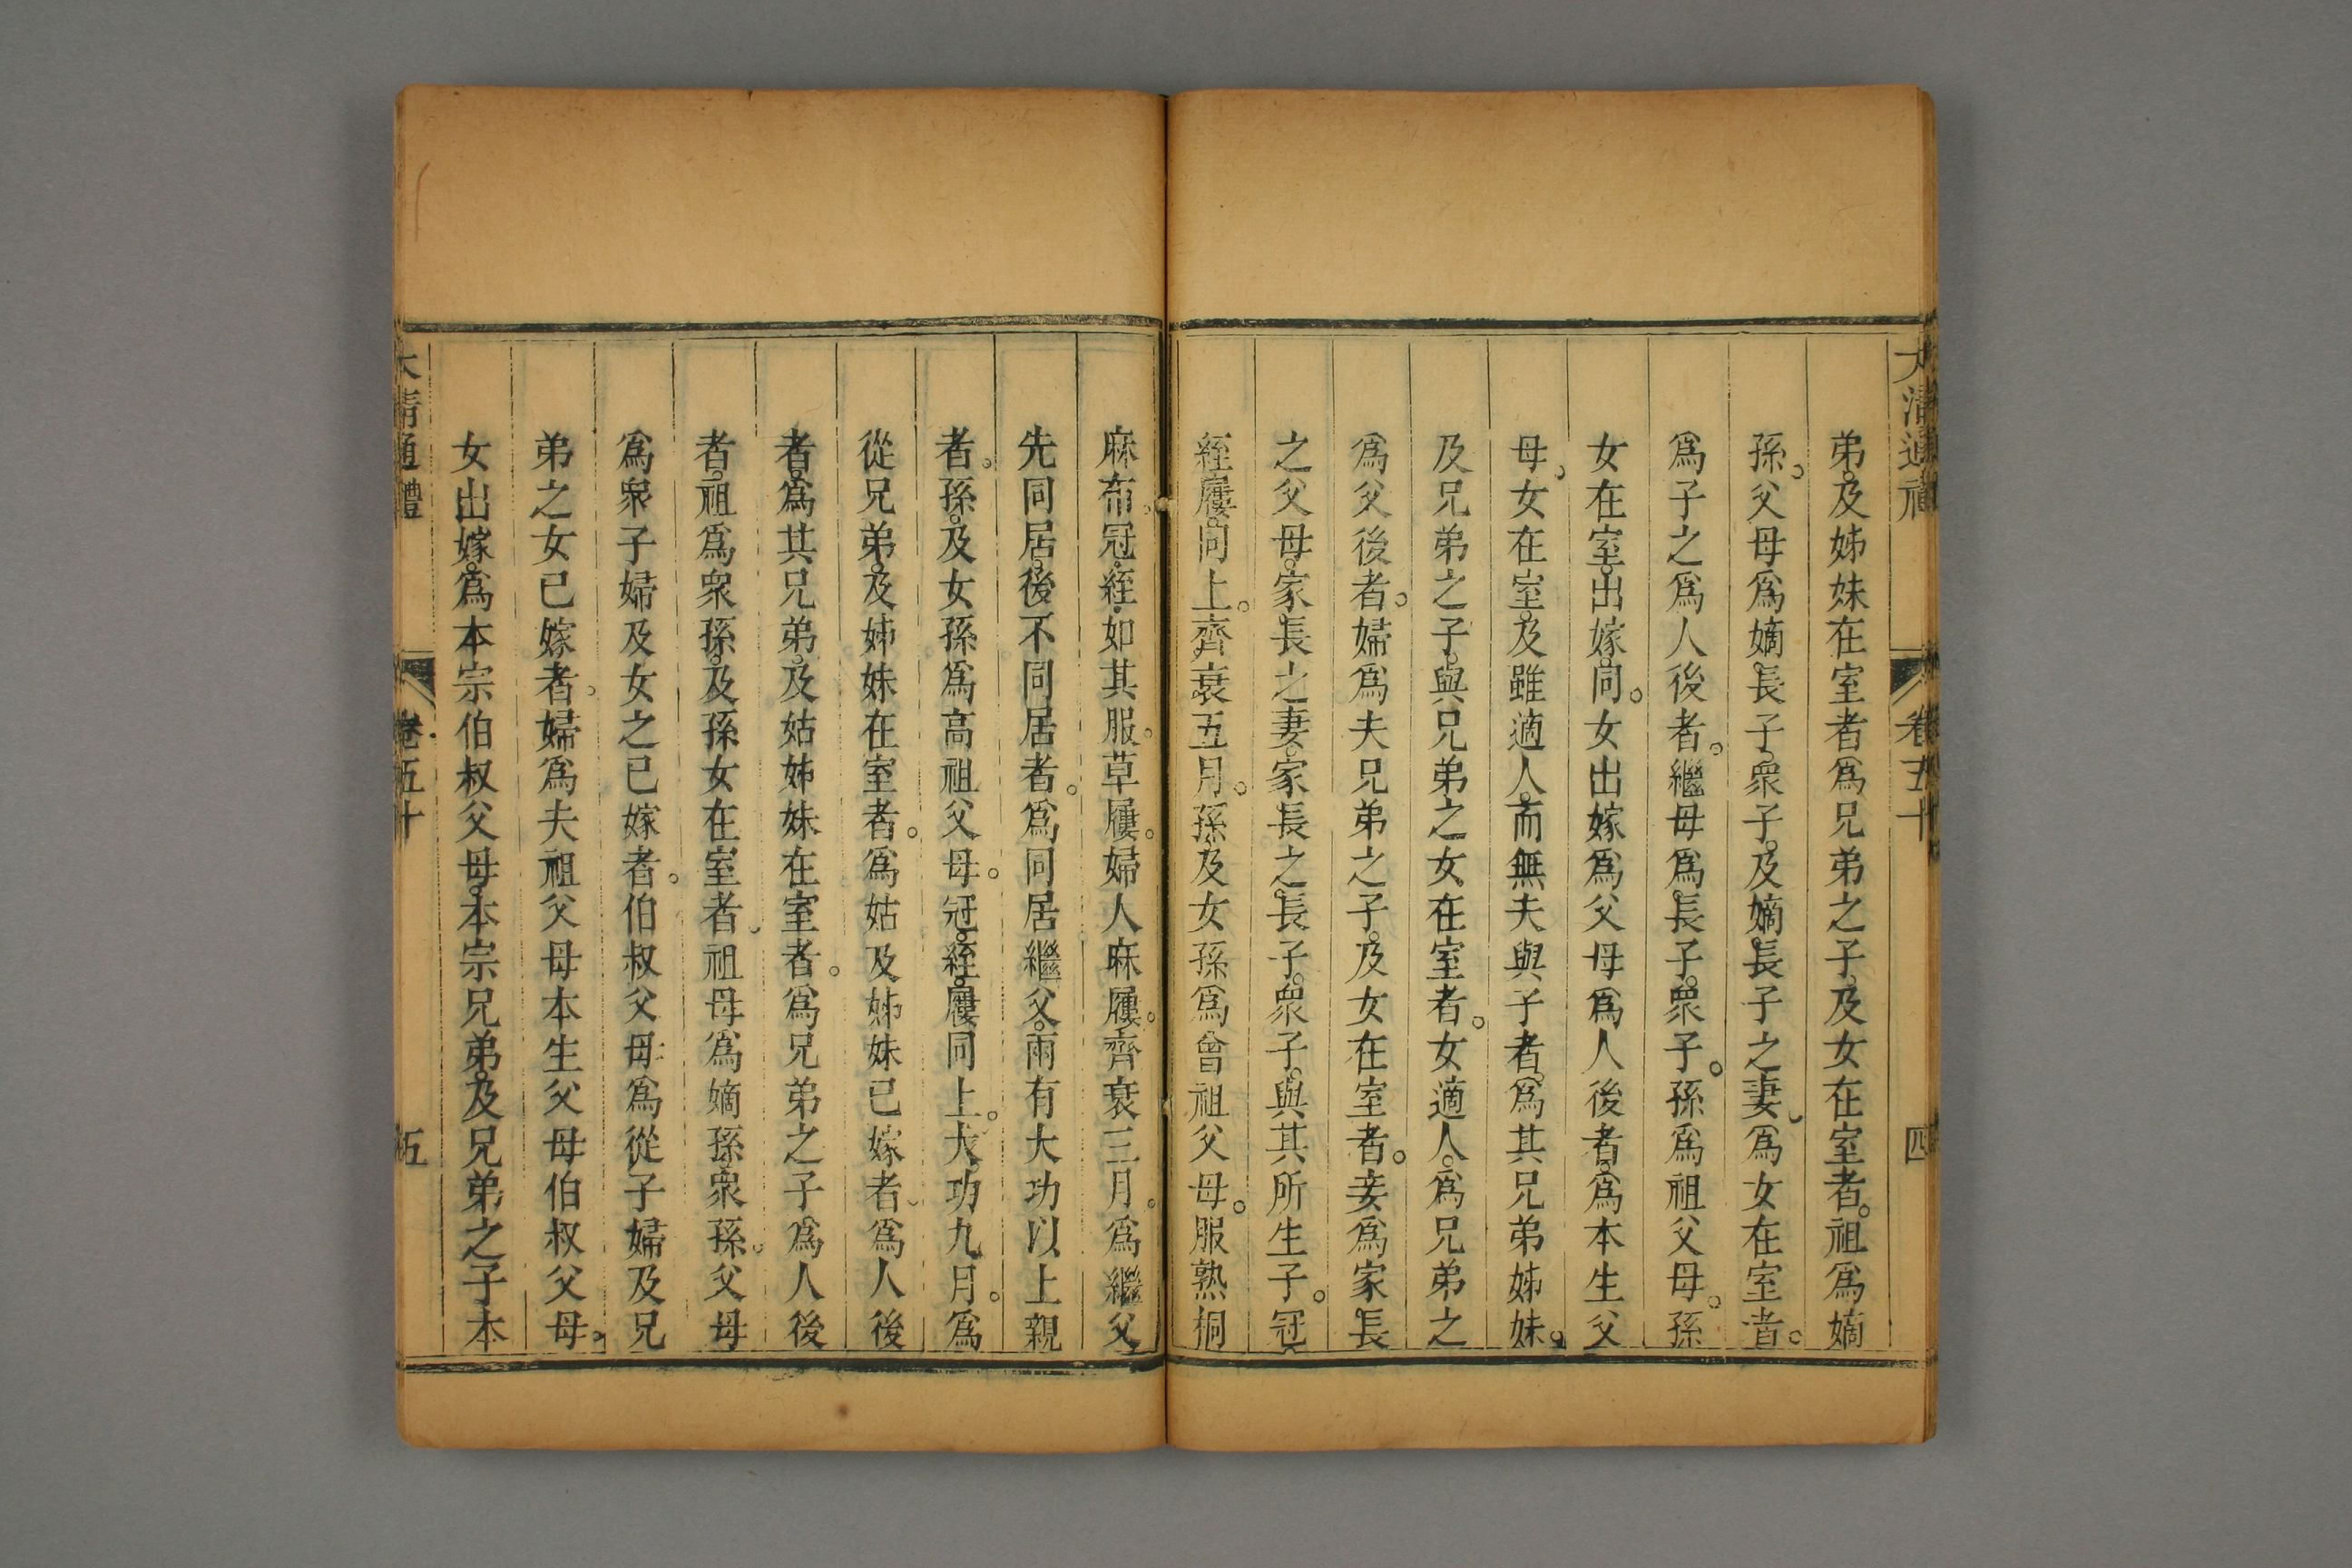 大清通禮 卷五十 四
弟。及姊妹在室者爲兄弟之子。及女在室者。祖爲嫡
孫。父母爲嫡長子。衆子。及嫡長子之妻。爲女在室者。
爲子之爲人後者。繼母爲長子。衆子。孫爲祖父母。孫
女在室。出嫁。同。女出嫁爲父母爲人後者。爲本生父
母。女在室。及雖適人。而無夫與子者。爲其兄弟姊妹。
及兄弟之子。與兄弟之女在室者。女適人。爲兄弟之
爲父後者。婦爲夫兄弟之子。及女在室者。妾爲家長
之父母。家長之妻。家長之長子。衆子。與其所生子。冠
絰屨。同上。齊衰五月。孫及女孫爲曾祖父母。服熟桐
麻布冠。絰。如其服。草屨。婦人麻屨。齊衰三月。爲繼父
先同居。後不同居者。爲同居繼父。兩有大功以上親
者。孫。及女孫爲高祖父母。冠。絰。屨同上。大功九月。爲
從兄弟。及姊妹在室者。爲姑及姊妹已嫁者。爲人後
者。爲其兄弟。及姑姊妹在室者。爲兄弟之子爲人後
者。祖爲衆孫。及孫女在室者。祖母爲嫡孫。衆孫。父母
爲衆子婦及女之已嫁者。伯叔父母爲從子婦及兄
弟之女已嫁者。婦爲夫祖父母本生父母伯叔父母。
女出嫁。爲本宗伯叔父母。本宗兄弟。及兄弟之子本
大清通禮 卷五十 五